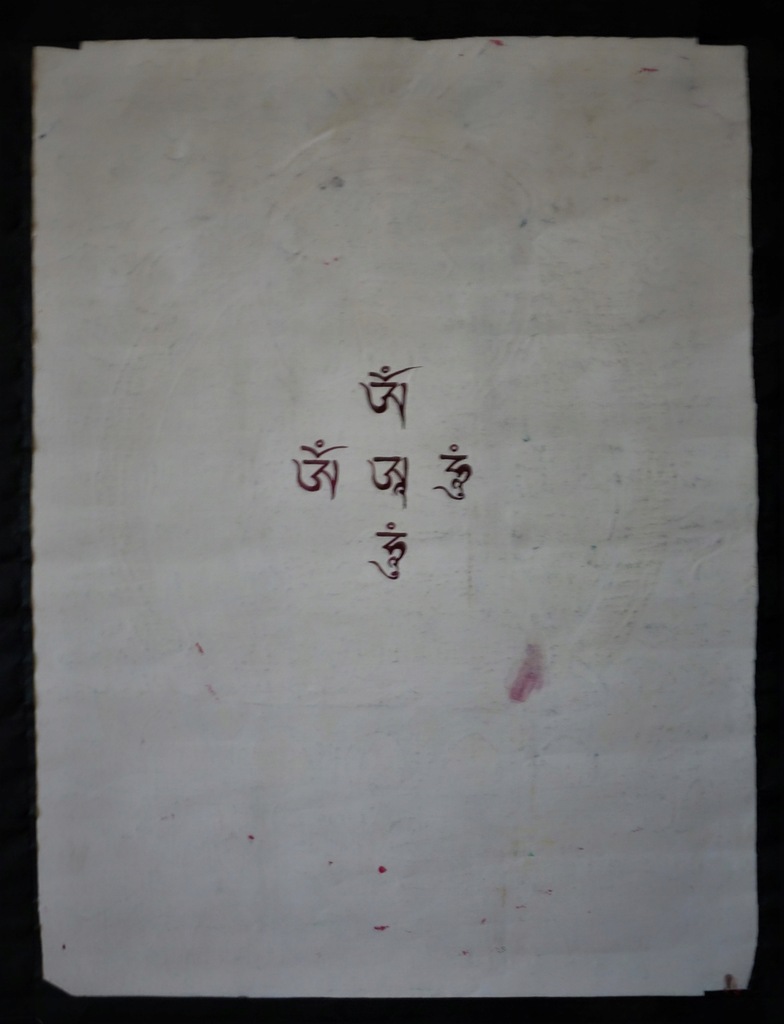 ཨོཾ
ཨོཾ ཨཱ ཧཱུཾ
ཧཱུཾ